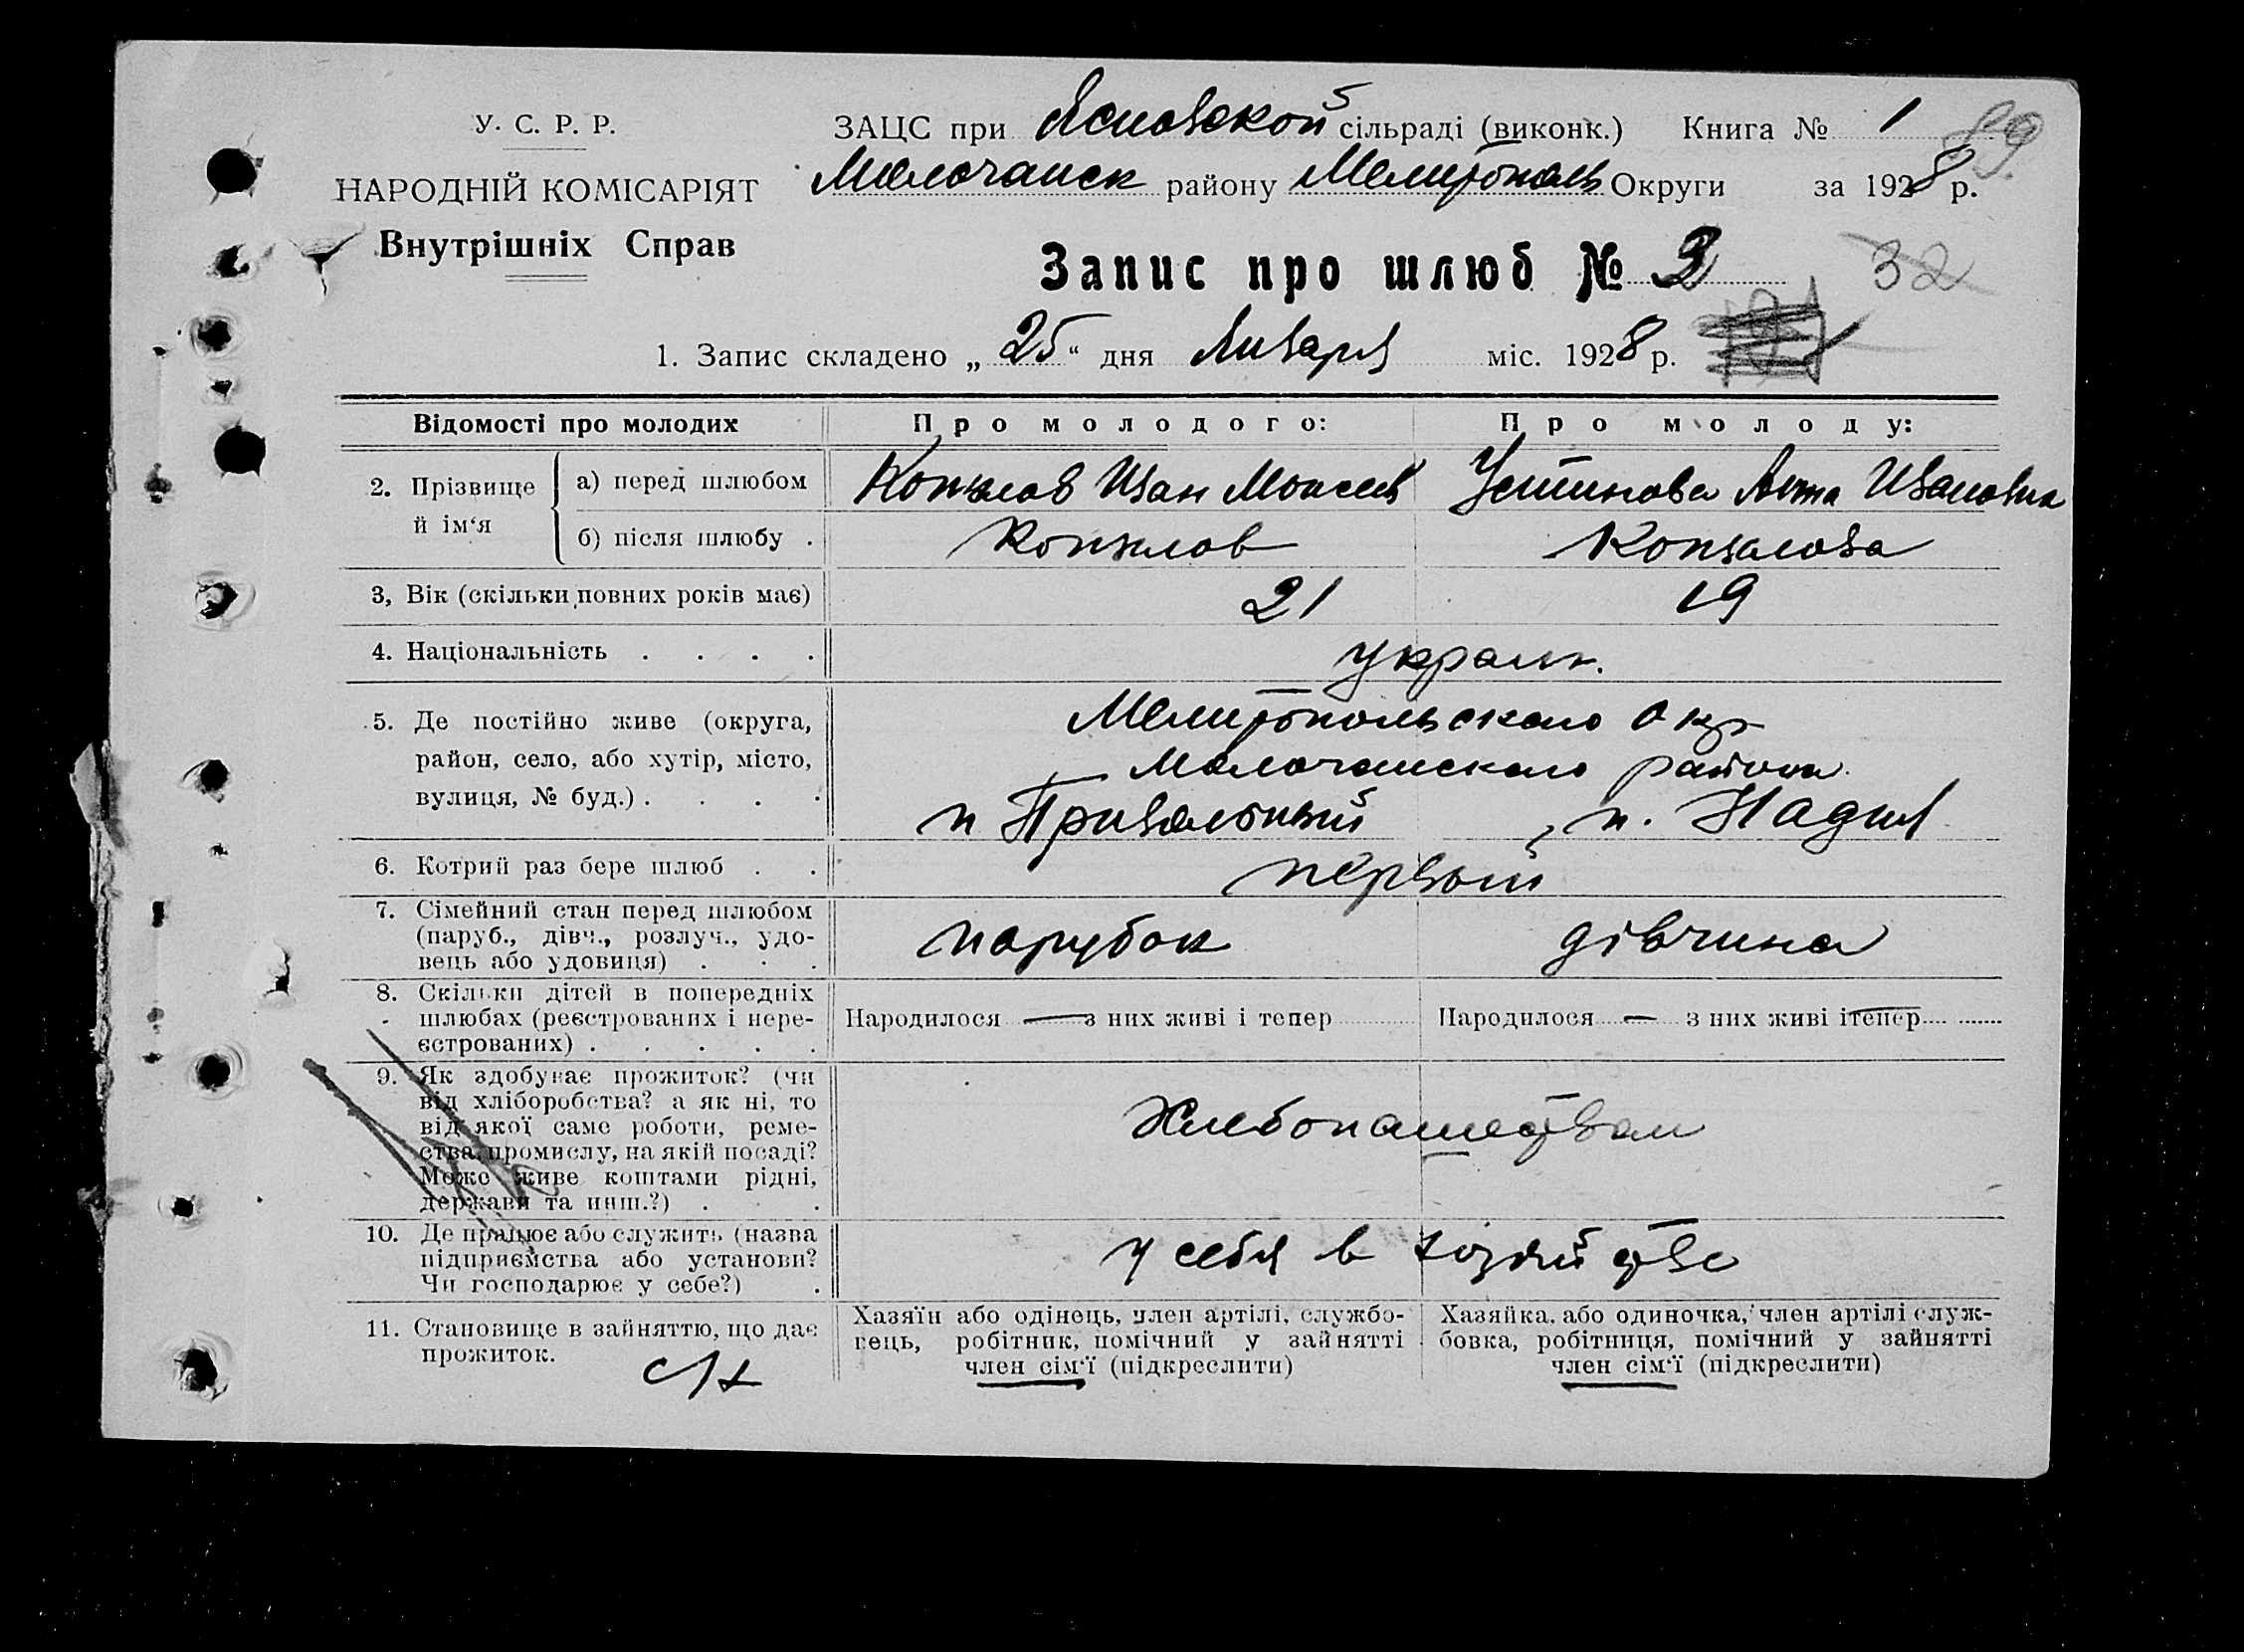 У. С. Р. Р.
НАРОДНІЙ КОМІСАРІЯТ
Внутрішніх Справ
ЗАЦС при Ясновской сільраді (виконк.) Книга № 1 89
Молочанск району Мелитополь Округи за 1928 р.
Запис про шлюб № 3 32
1. Запис складено „25“ дня Января міс. 1928 р.
Відомості про молодих Про молодого: Про молоду:
2. Прізвище й ім‘я
а) перед шлюбом Иван Моисеев Устинова Анна Ивановна
б) після шлюбу .
3, Вік (скільки повних років має) 21 19
4. Національність . . . . украин.
5. Де постійно живе (округа, район, село, або хутір, місто, вулиця, № буд.) . . . .
Мелитопольскаго окр
Молочанскаго района
п Привольный п. Надия
6. Котрий раз бере шлюб . . первый
7. Сімейний стан перед шлюбом (паруб., дівч., розлуч., удовець або удовиця) . . . парубок дівчина
8. Скільки дітей в попередніх шлюбах (реєстрованих і нереєстрованих) . . . . .
Народилося — з них живі і тепер Народилося — з них живі і тепер
9. Як здобуває прожиток? (чи від хліборобства? а як ні, то від якої саме роботи, ремества, промислу, на якій посаді? Може живе коштами рідні, держави та инш.?) . .
Хлебопашеством
10. Де працює або служить (назва підприємства або установи? Чи господарює у себе?) .
у себя в хозяйстве
11. Становище в зайняттю, що дає прожиток.
Хазяїн або одінець, член артілі, службовець, робітник, помічний у зайнятті член сім‘ї (підкреслити)
Хазяйка, або одиночка, член артілі службовка, робітниця, помічний у зайнятті член сім‘ї (підкреслити)